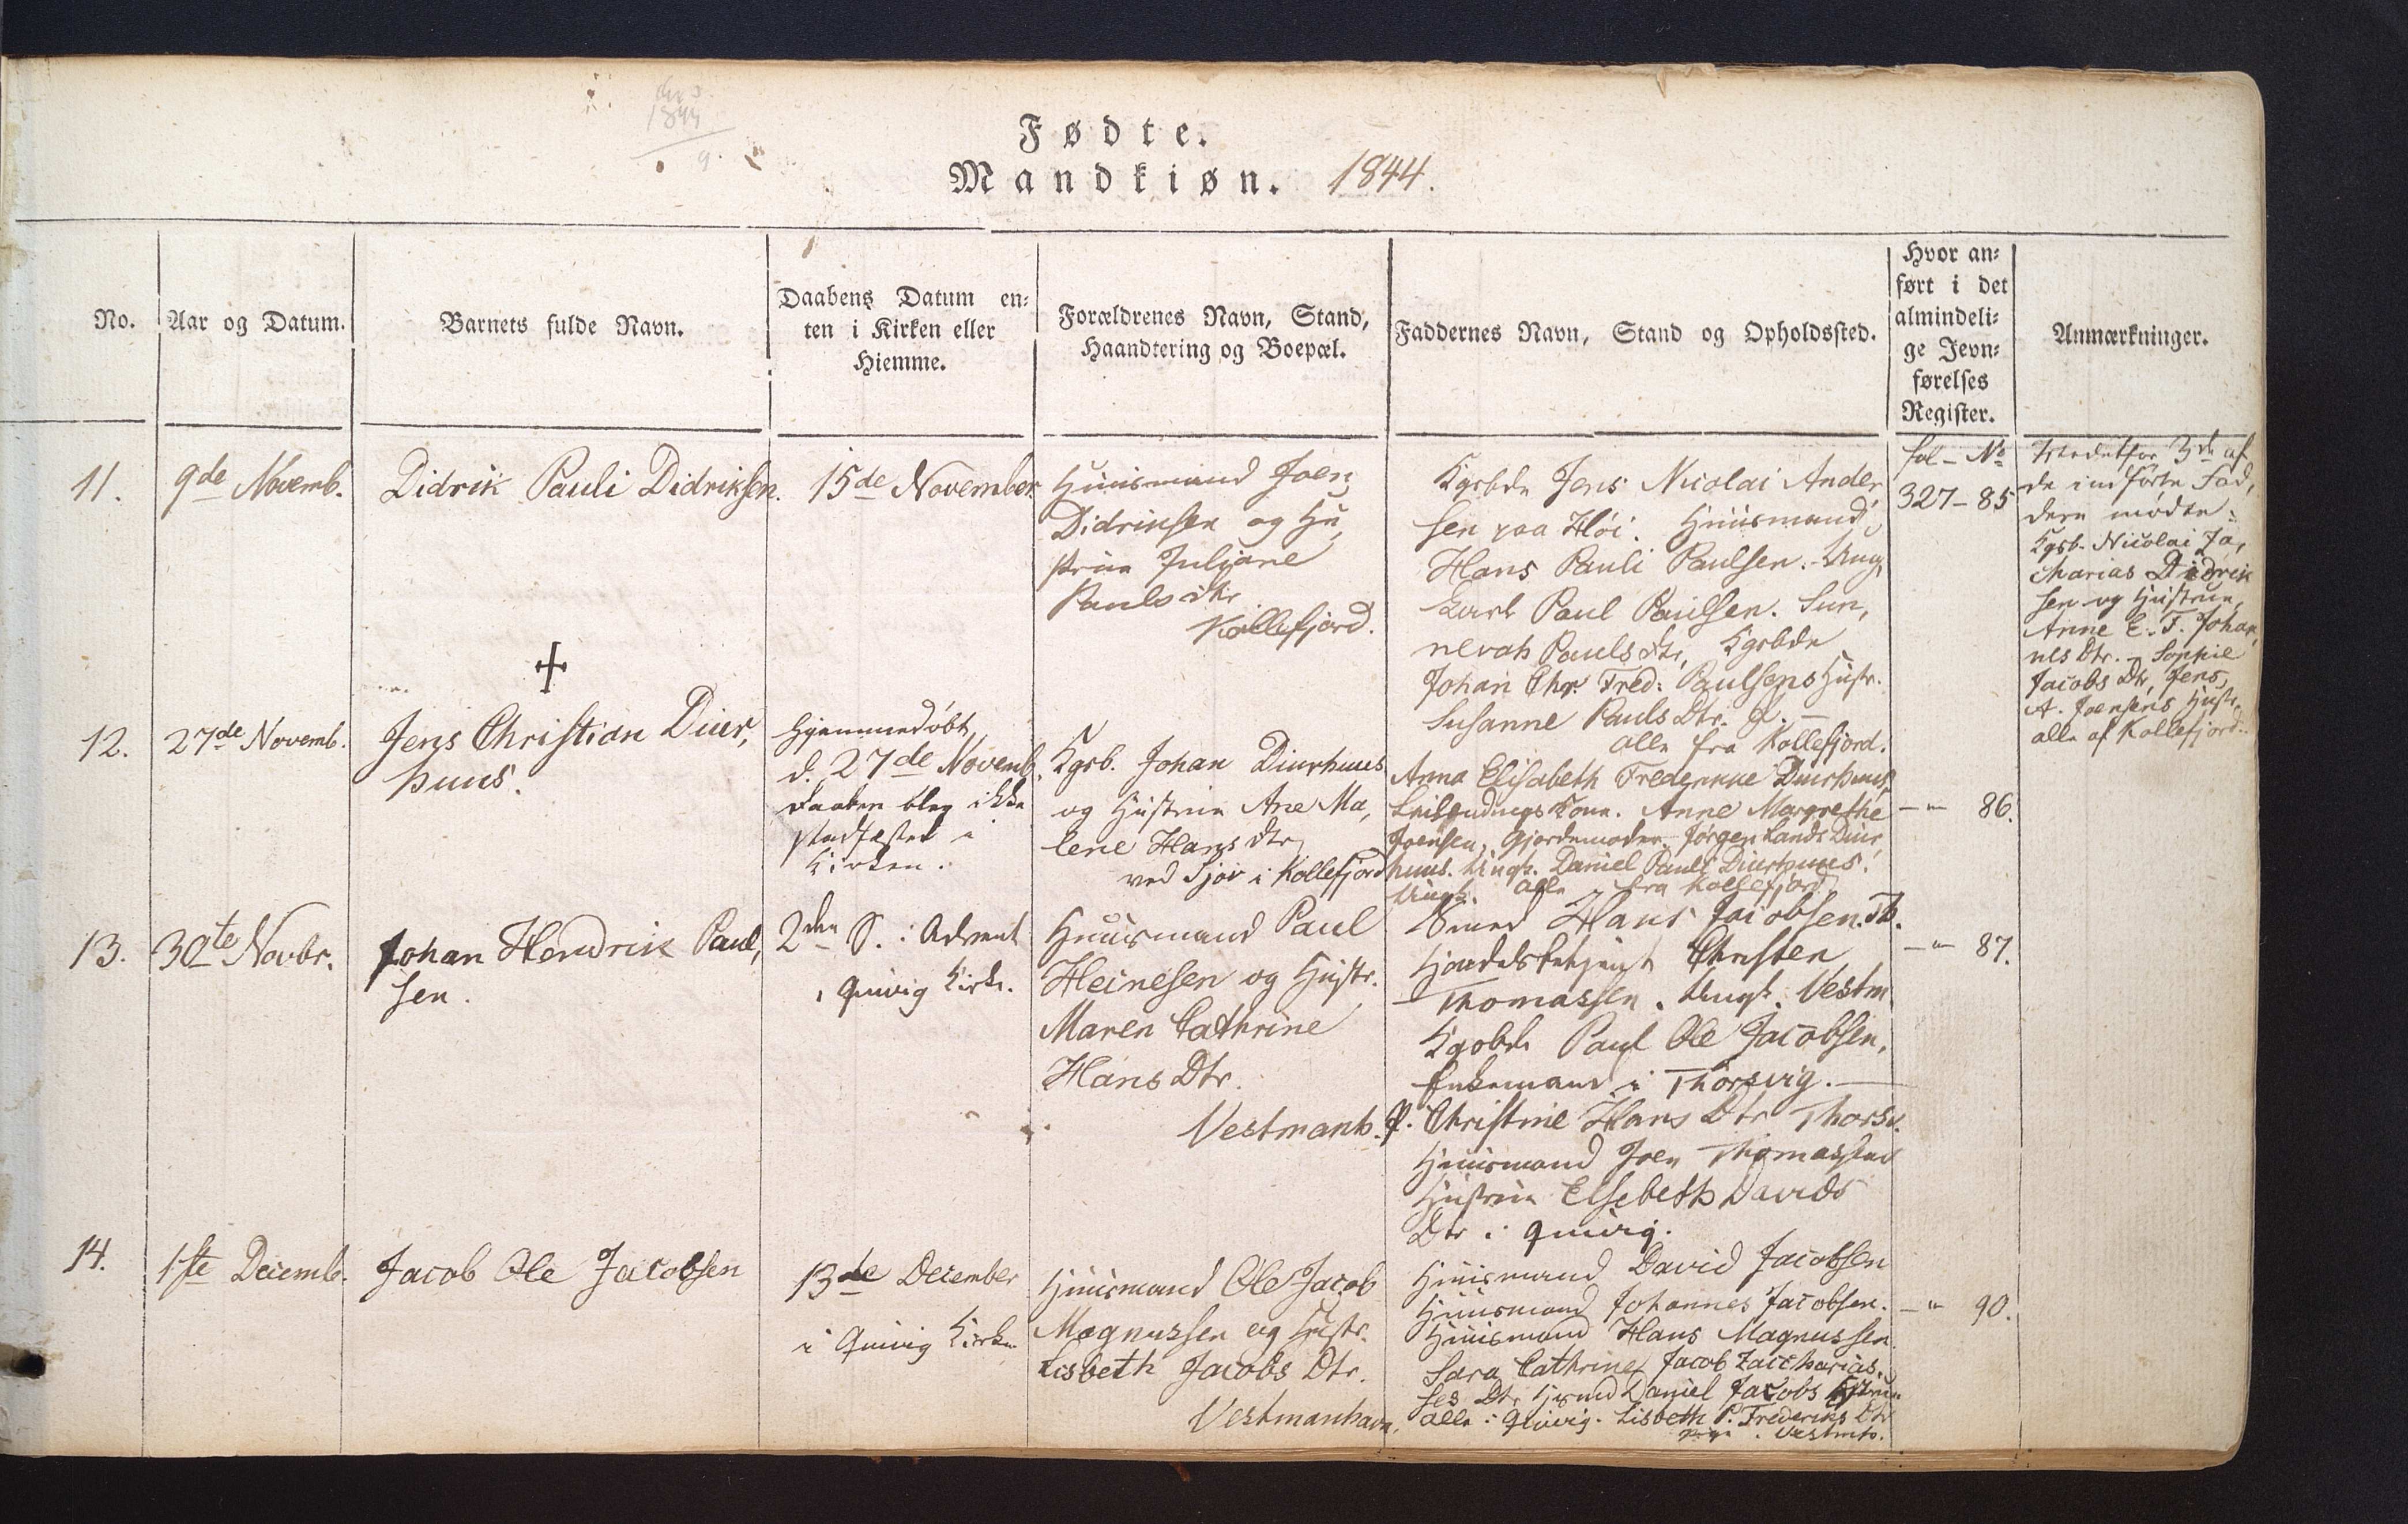 Fødte.
Mandkiøn. 1844.
No.
Aar og Datum.
Barnets fulde Navn.
Daabens Datum en=
ten i Kirken eller
Hiemme.
Forældrenes Navn, Stand,
Haandtering og Boepæl.
Faddernes Navn, Stand og Opholdssted.
Hvor an=
ført i det
almindeli=
ge Jevn=
førelses
Register.
Anmærkninger.
11.
9de Novemb.
Didrik Pauli Didriksen.
15de November
Huusmand Joen
Didriksen og Hu,
strue Juljane
Pauls dtr
Kollefjord.
Kgsbde Jens Nicolai Ander,
sen paa Høi. Huusmand
Hans Pauli Paulsen. Ung,
karl Paul Paulsen. Sun,
nevah Pauls Dtr, Kgsbde
Johan Chr. Fred: Paulsens Hustr.
Susanne Pauls Dtr. P. —
alle fra Kollefjord.
fol - No
327 - 85
Istedetfor 3de af
de indførte Fad,
dere mødte:
Kgsb. Nicolai Za,
charias Didrik
sen og Hustrue
Anne E. F. Johan,
nes Dtr. - Sophie
Jacobs Dtr, Jens
A. Joensens Hustr.
alle af Kollefjord.
12.
27de Novemb.
Jens Christian Diur,
huus.
Hjemmedøbt
d. 27de Novemb.
Daaben blev ikke
stadfæstet i
Kirken.
Kgsb. Johan Diurhuus
og Hustrue Ane Ma,
lene Hans dtr
ved Sjov i Kollefjord
Anna Elisabeth Frederikke Diurhuus,
Leilændings Kone. Anne Margrethe
Joensen, Gjordemoder. Jørgen Lands Diur
huus. Ungk. Daniel Pauli Diurhuus.
Ungk. alle fra Kollefjord.
— " 86.
13.
30te Novbr.
Johan Hendrik Paul,
sen.
2den S. i Advent
i Qvivig Kirke.
Huusmand Paul
Heinesen og Hustr.
Maren Cathrine
Hans Dtr.
Vestmanh.
Smed Hans Jacobsen. Th.
Christen
Thomassen. Ungk. Vestm.
Kgsbde Paul Ole Jacobsen,
Enkemand i Thorsvig. —
P. Christine Hans Dtr Thorsv.
Huusmand Joen Thomassens
Hustrue Elsebeth Davids
Dtr i Qvivig.
— " 87.
14.
1ste Decemb.
Jacob Ole Jacobsen
13de December
i Qvivig Kirke
Huusmand Ole Jacob
Magnussen og Hustr.
Lisbeth Jacobs Dtr.
Vestmanhavn.
Huusmand David Jacobsen
Huusmand Johannes Jacobsen.
Huusmand Hans Magnussen
Sara Cathrine Jacob Zaccharias,
ses Dtr Daniel Jacobs Hustrue
alle i Qvivig. Lisbeth P. Frederiks Dtr
Pige i Vestmh.
— " 90.